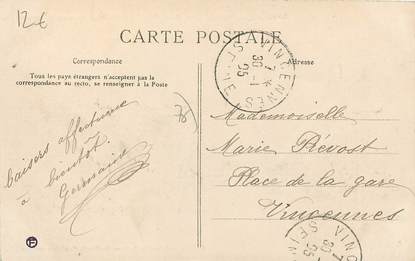 12€
CARTE POSTALE
Correspondance
Adresse
Tous les pays étrangers n'acceptent pas la
correspondance au recto, se renseigner à la Poste
VINCENNES
7 *
30 - 1
25
SEINE
78
baisers affectueux
à bientôt.
Germaine
Mademoiselle
Marie Prévost
Place de la gare
Vincennes
VINC
7
30
25
SEIN
F